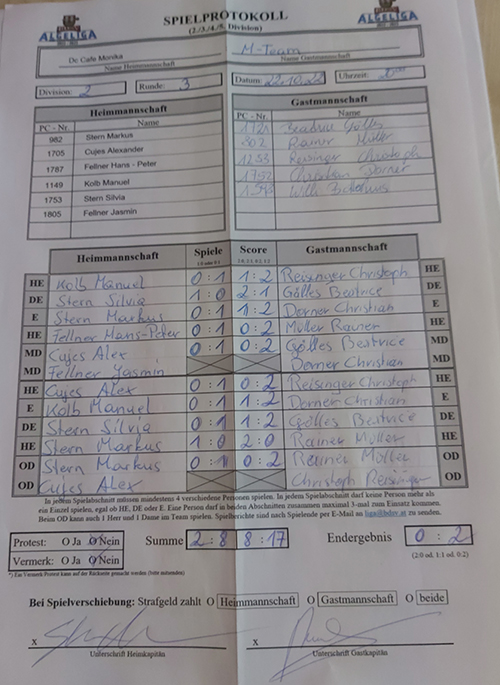 ALGELIGA
SPIELPROTOKOLL
(2./3./4./5. Division)
ALGELIGA
Dc Cafe Monika
Name Heimmannschaft
M-Team
Name Gastmannschaft
Division: 2 Runde: 3 Datum: 22.10.22 Uhrzeit:
Heimmannschaft
PC - Nr. Name
982 Stern Markus
1705 Cujes Alexander
1787 Fellner Hans - Peter
1149 Kolb Manuel
1753 Stern Silvia
1805 Fellner Jasmin
Gastmannschaft
PC - Nr. Name
1721 Beatrice Gölles
302 Rainer Müller
1253 Reisinger Christoph
1752 Christian Dorner
Heimmannschaft Spiele Score Gastmannschaft
HE Kolb Manuel 0:1 1:2 Reisinger Christoph HE
DE Stern Silvia 1:0 2:1 Gölles Beatrice DE
E Stern Markus 0:1 1:2 Dorner Christian E
HE Fellner Hans-Peter 0:1 0:2 Müller Rainer HE
MD Cujes Alex 0:1 0:2 Gölles Beatrice MD
MD Fellner Jasmin Dorner Christian MD
HE Cujes Alex 0:1 0:2 Reisinger Christoph HE
E Kolb Manuel 0:1 1:2 Dorner Christian E
DE Stern Silvia 0:1 1:2 Gölles Beatrice DE
HE Stern Markus 1:0 2:0 Rainer Müller HE
OD Stern Markus 0:1 0:2 Rainer Müller OD
OD Cujes Alex Christoph Reisinger OD
In jedem Spielabschnitt müssen mindestens 4 verschiedene Personen spielen. In jedem Spielabschnitt darf keine Person mehr als
ein Einzel spielen, egal ob HE, DE oder E. Eine Person darf in beiden Abschnitten zusammen maximal 3-mal zum Einsatz kommen.
Beim OD kann auch 1 Herr und 1 Dame im Team spielen. Spielberichte sind nach Spielende per E-Mail an liga@bdsv.at zu senden.
Protest: O Ja O Nein Summe 2:8 8:17 Endergebnis 0:2
Vermerk: O Ja O Nein (2:0 od. 1:1 od. 0:2)
*) Ein Vermerk/Protest kann auf der Rückseite gemacht werden (bitte ankreuzen)
Bei Spielverschiebung: Strafgeld zahlt O Heimmannschaft O Gastmannschaft O beide
x x
Unterschrift Heimkapitän Unterschrift Gastkapitän